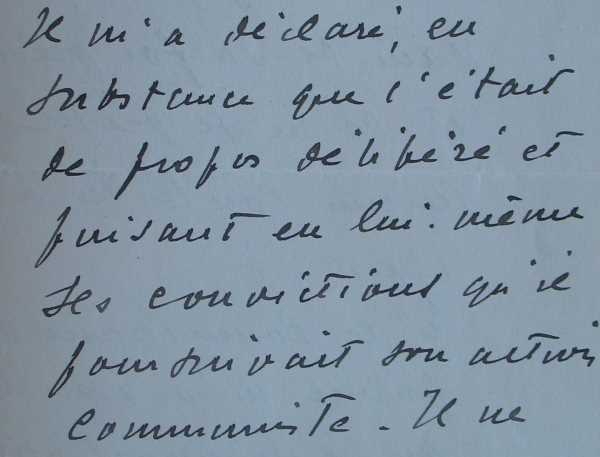 Il m'a déclaré, en
substance que c'était
de propos délibéré et
puisant en lui-même
ses convictions qu'il
poursuivait son activi
communiste. Il ne